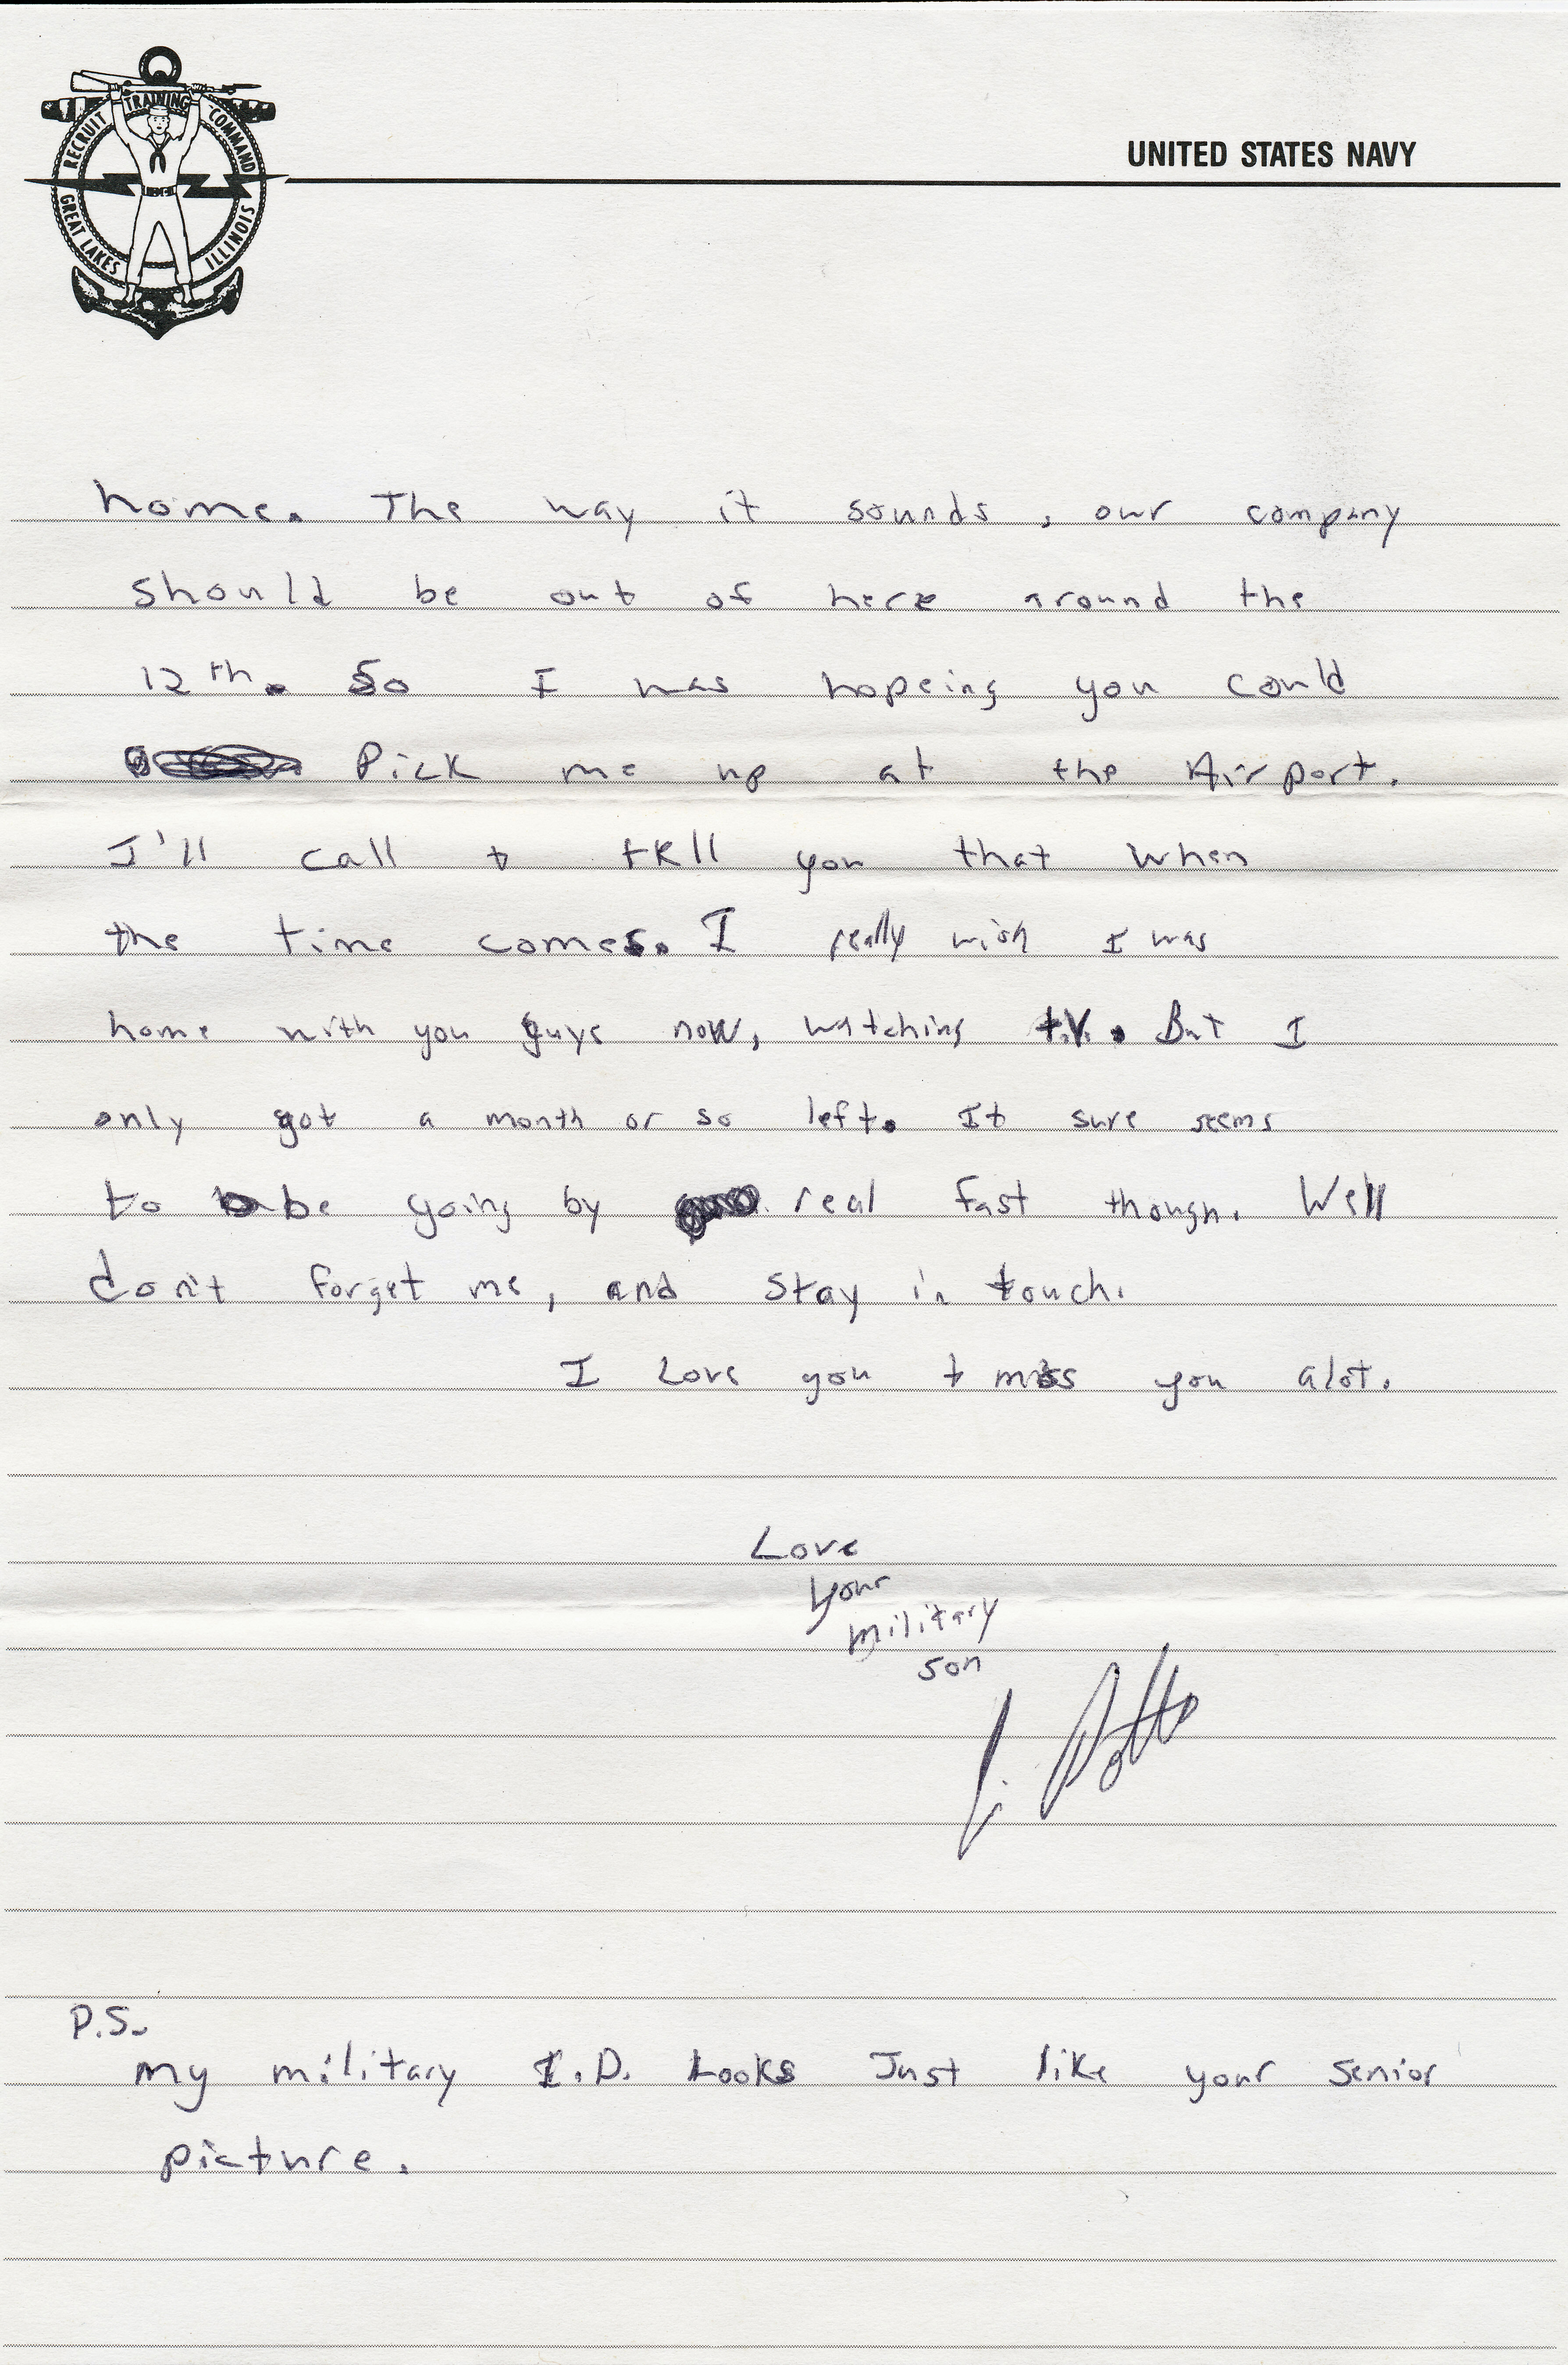 RECRUIT TRAINING COMMAND
GREAT LAKES ILLINOIS
UNITED STATES NAVY
home. The way it sounds, our company
should be out of here around the
12th. So I was hopeing you could
Pick me up at the Airport.
I'll call + tell you that when
the time comes. I really wish I was
home with you guys now, watching t.V. But I
only got a month or so left. It sure seems
to be going by real fast though. Well
don't forget me, and stay in touch.
I Love you + miss you alot.
Love
your
military
son
P.S.
my military I.D. Looks Just like your senior
picture.